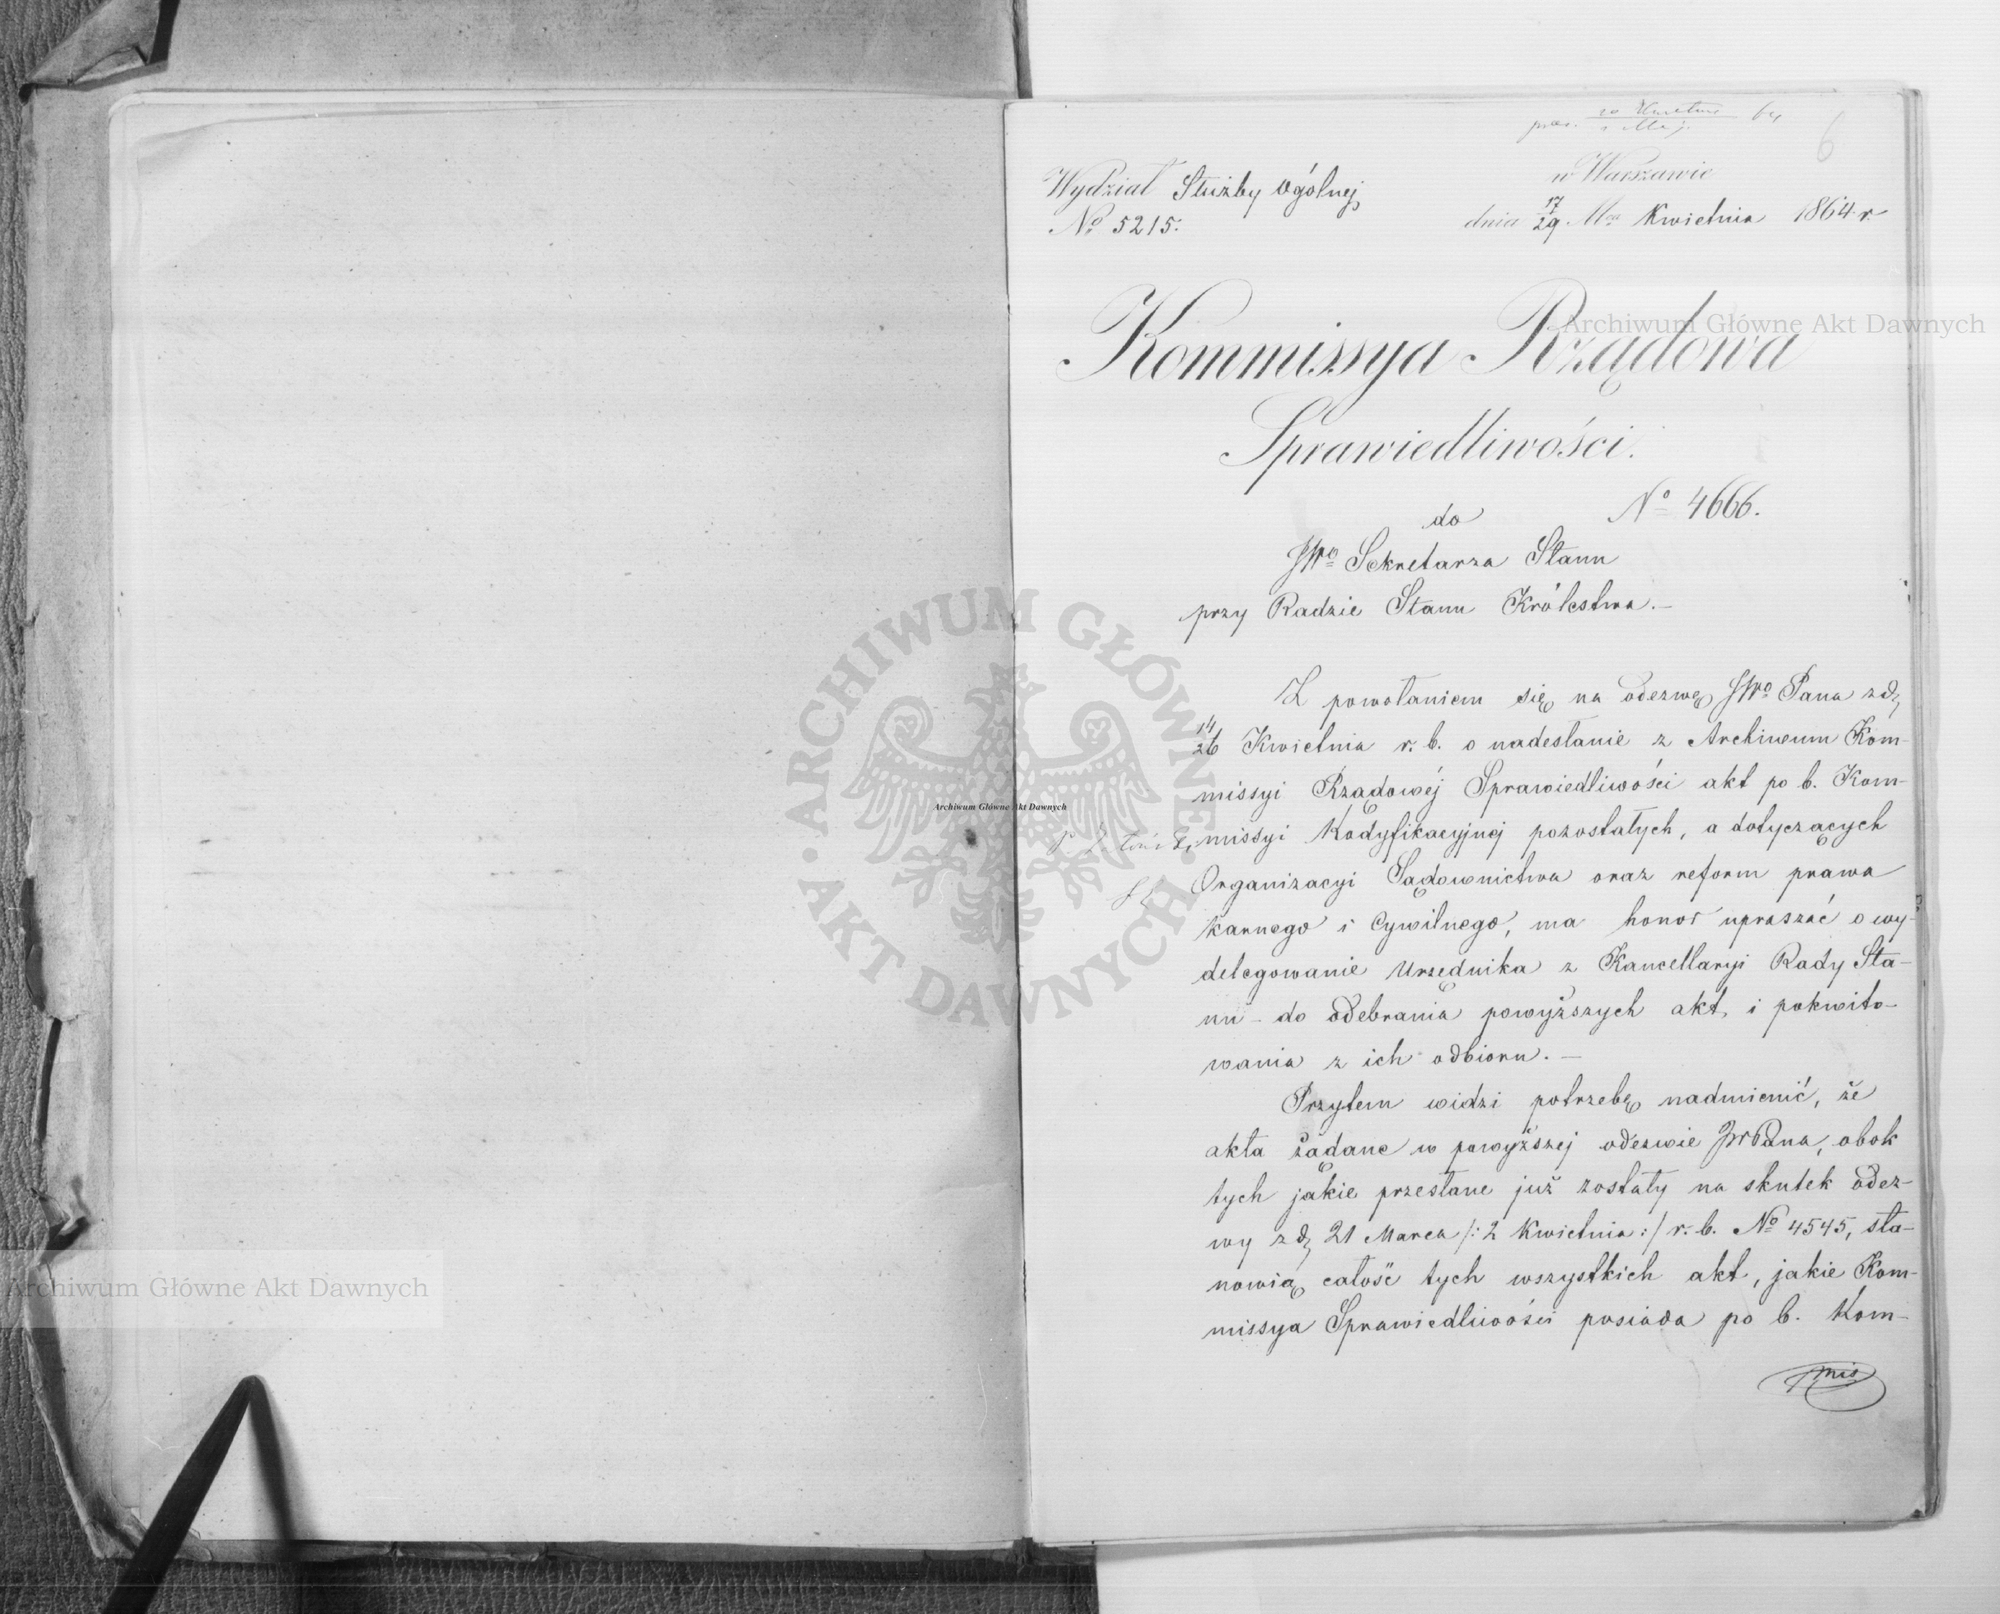 6
w Warszawie
Wydział Służby Ogólnej
dnia 17/29 Mca Kwietnia 1864 r.
No 5215.
Kommissya Rządowa
Sprawiedliwości.
No 4666.
do
JWo Sekretarza Stanu
przy Radzie Stanu Królestwa.—
Z powołaniem się na odezwę JWo Pana z d.
14/26 Kwietnia r. b. o nadesłanie z Archiwum Kom-
missyi Rządowéj Sprawiedliwości akt po b. Kom-
missyi Kodyfikacyjnej pozostałych, a dotyczących
Organizacyi Sądownictwa oraz reform prawa
Karnego i Cywilnego, ma honor upraszać o wy-
delegowanie Urzędnika z Kancellaryi Rady Sta-
nu - do odebrania powyższych akt, i pokwito-
wania z ich odbioru.—
Przytem widzi potrzebę nadmienić, że
akta żądane w powyższej odezwie JW Pana, obok
tych jakie przesłane już zostały na skutek odez-
wy z d. 21 Marca /:2 Kwietnia:/ r. b. No 4545, sta-
nowią całość tych wszystkich akt, jakie Kom-
missya Sprawiedliwości posiada po b. Kom-
mis
Archiwum Główne Akt Dawnych
ARCHIWUM GŁÓWNE AKT DAWNYCH
Archiwum Główne Akt Dawnych
Archiwum Główne Akt Dawnych